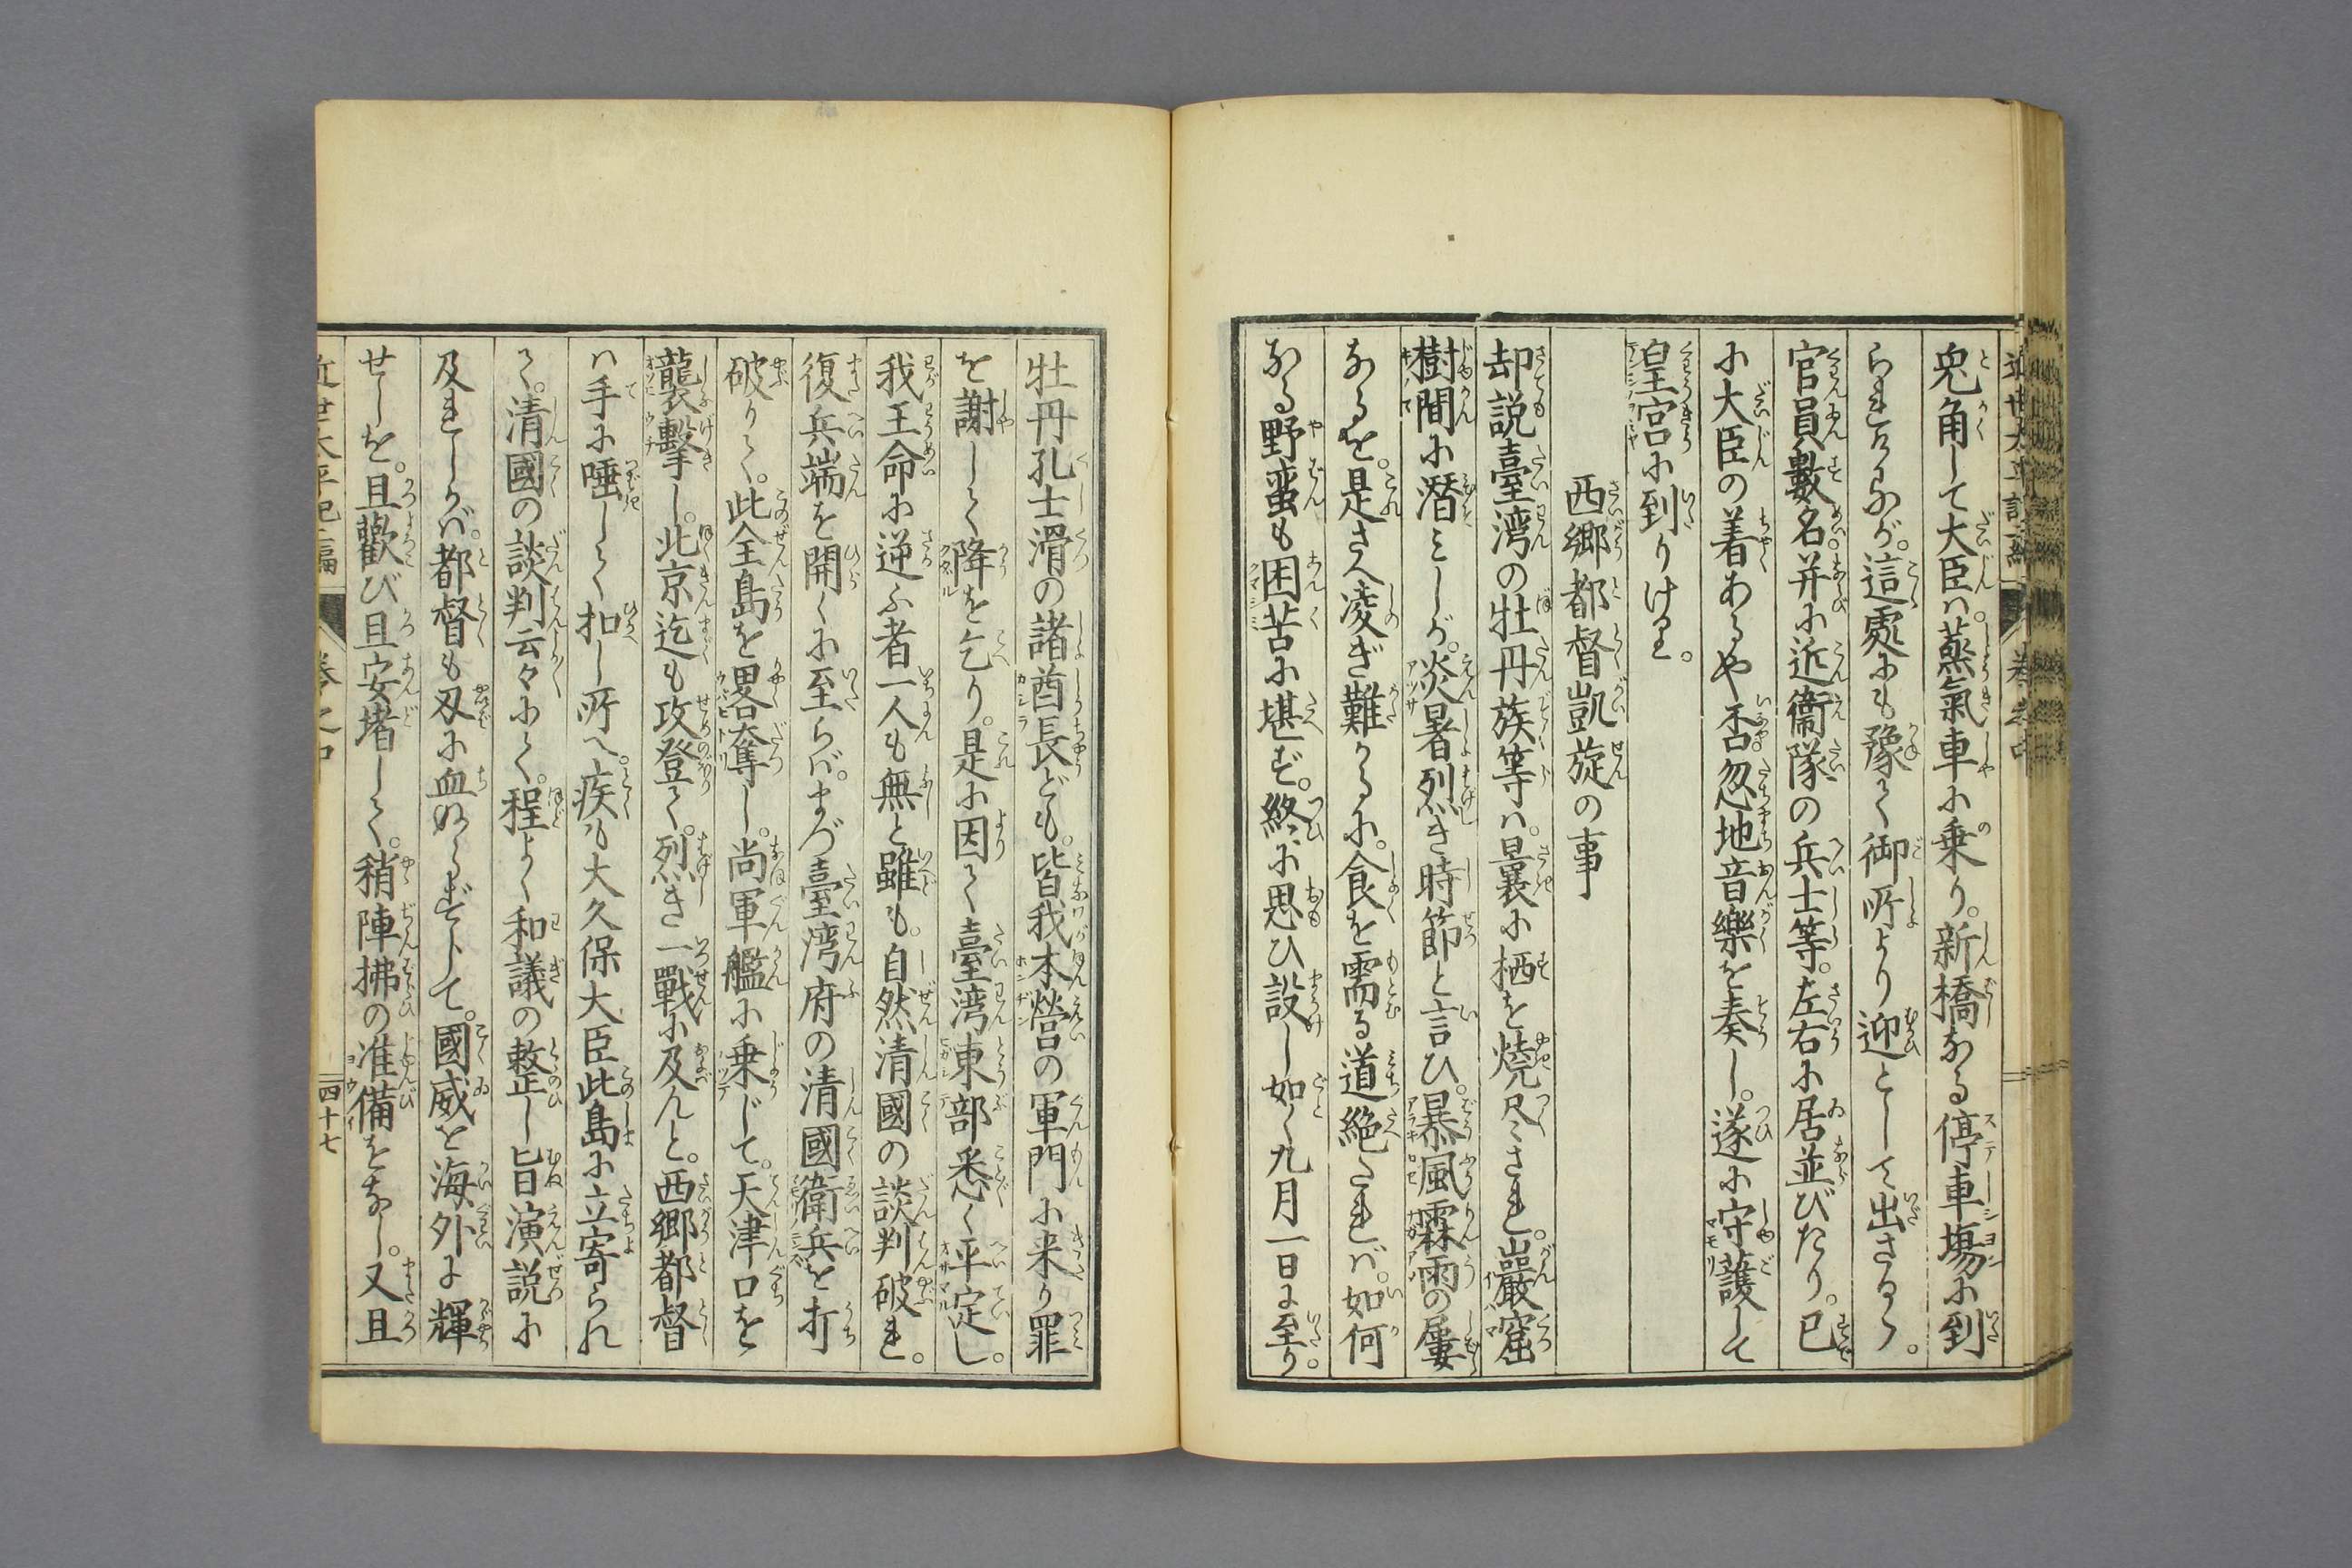 兎角して大臣ハ。蒸氣車に乗り。新橋なる停車塲に到
られけるが。這處にも豫て御所より迎として出さるゝ。
官員數名。并に近衞隊の兵士等。左右に居並びたり。已
に大臣の着あるや否。忽地音樂を奏し。遂に守護して
皇宮に到りける。
西郷都督凱旋の事
却説臺湾の牡丹族等ハ。曩に栖を燒尽され。巖窟
樹間に潜みしが。炎暑烈き時節と言ひ。暴風霖雨の屢
なるを。是さへ凌ぎ難かるに。食を需る道絶たれバ。如何
なる野蛮も困苦に堪ず。終に思ひ設し如く九月一日に至り。
牡丹孔士滑の諸酋長ども。皆我本營の軍門に来り罪
を謝して降を乞り。是に因て臺湾東部悉く平定し。
我王命に逆ふ者一人も無と雖も。自然清國の談判破れ。
復兵端を開くに至らバ。まづ臺湾府の清國衞兵を打
破りて。此全島を畧奪し。尚軍艦に乗じて。天津口を
襲撃し。北京迄も攻登て。烈き一戰に及んと。西郷都督
ハ手に唾して扣し所へ。疾も大久保大臣此島に立寄られ
て。清國の談判云々にて。程よく和議の整し旨演説に
及れしかバ。都督も刄に血ぬらずして。國威を海外に輝
せしを。且歡び且安堵して。稍陣拂の准備をなし。又且
近世太平記二編
巻之中
四十七